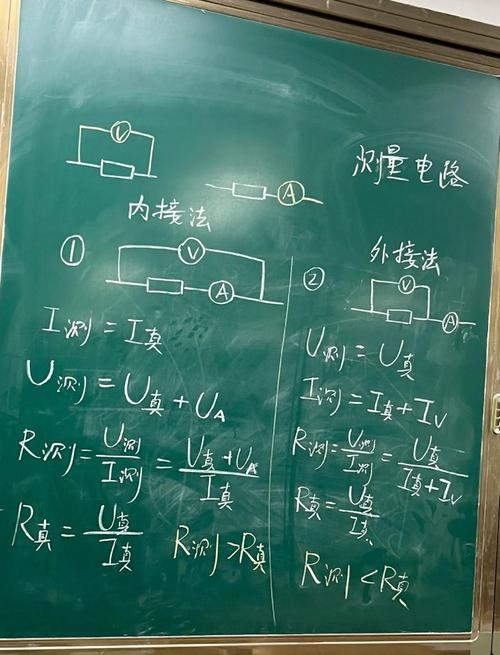 V
A
测量电路
内接法
①
V
A
I测=I真
U测=U真+U_A
R测=U测/I测=(U真+U_A)/I真
R真=U真/I真
R测>R真
外接法
②
V
A
U测=U真
I测=I真+I_V
R测=U测/I测=U真/(I真+I_V)
R真=U真/I真
R测<R真